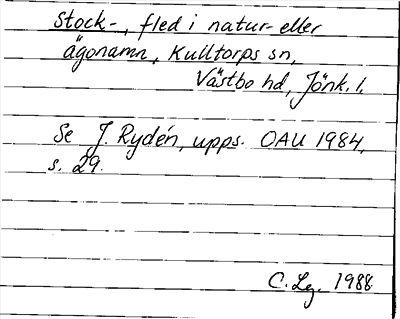 Stock-, fled i natur- eller
ägonamn, Kulltorps sn,
Västbo hd, Jönk. l.
Se J. Rydén, upps. OAU 1984,
s. 29.
C. Lg. 1988